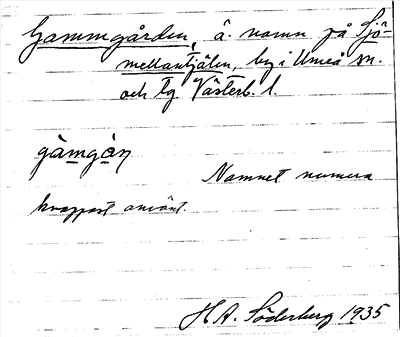 Gammgården, ä. namn på Sjö-
mellantjälen, by i Umeå sn.
och tg Västerb. l.
gàmgàn
Namnet numera
knappast använt.
H.A. Söderberg 1935